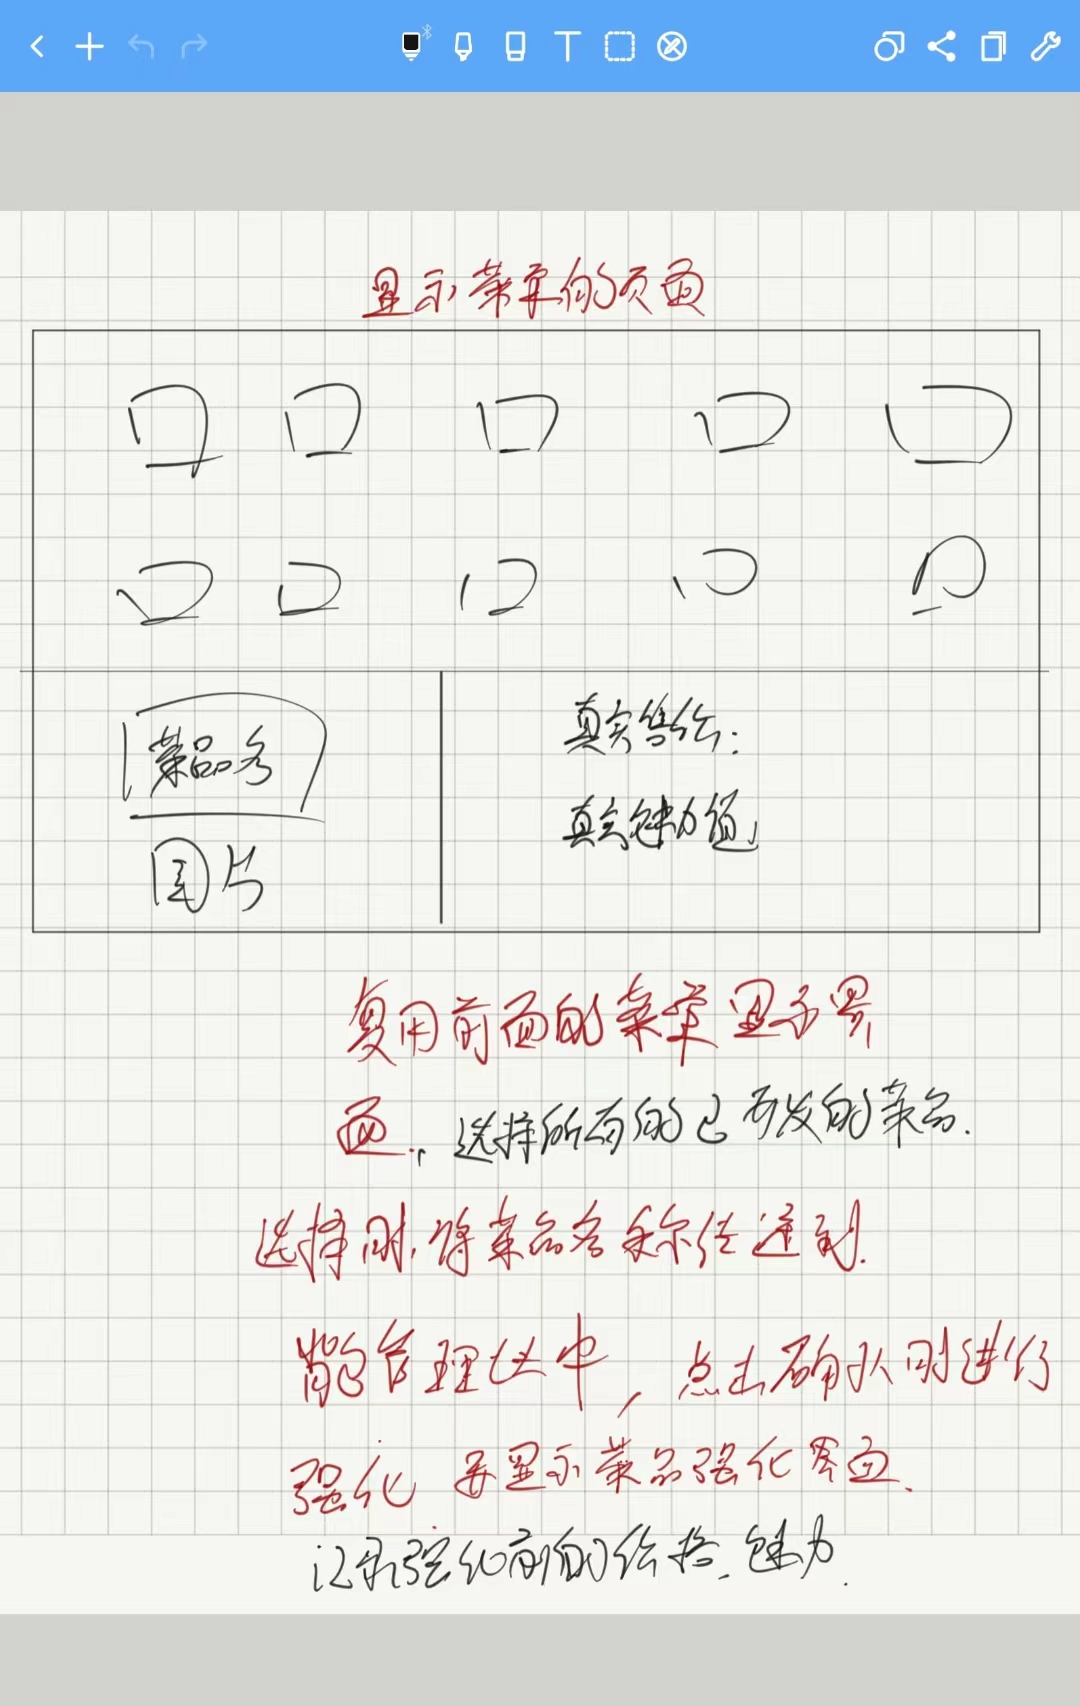 显示菜单的页面
菜品名
图片
真实售价：
真实魅力值
复用前面的菜单显示界
面，选择所有的已开发的菜品.
选择时，将菜品名称传递到.
管理类中，点击确认时进行
强化 要显示菜品强化界面.
记录强化前的价格、魅力.